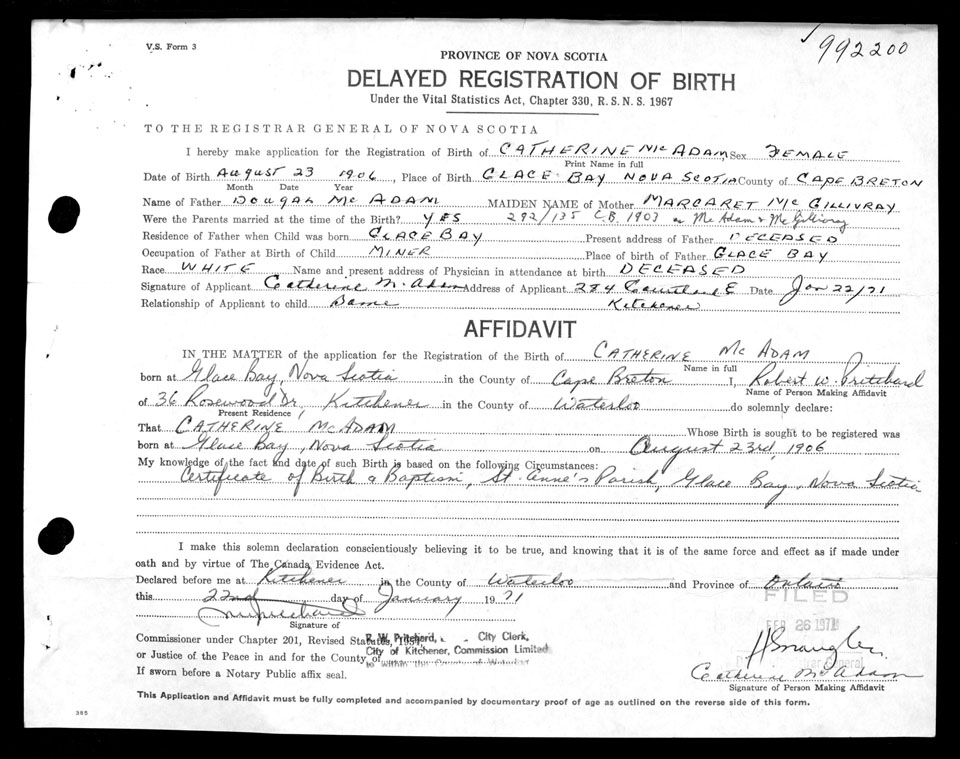 V.S. Form 3
992200
PROVINCE OF NOVA SCOTIA
DELAYED REGISTRATION OF BIRTH
Under the Vital Statistics Act, Chapter 330, R.S.N.S. 1967
TO THE REGISTRAR GENERAL OF NOVA SCOTIA
I hereby make application for the Registration of Birth of CATHERINE Mc ADAM, Sex FEMALE
Print Name in full
Date of Birth August 23 1906, Place of Birth GLACE BAY NOVA SCOTIA County of CAPE BRETON
Month Date Year
Name of Father DOUGAL Mc ADAM MAIDEN NAME of Mother MARGARET Mc GILLIVRAY
Were the Parents married at the time of the Birth? YES 292/135 C.B. 1903 Mc Adam & McGillivray
Residence of Father when Child was born GLACE BAY Present address of Father DECEASED
Occupation of Father at Birth of Child MINER Place of birth of Father GLACE BAY
Race WHITE Name and present address of Physician in attendance at birth DECEASED
Signature of Applicant Catherine Mc Adam Address of Applicant 284 Courtland E Date Jan 22/71
Relationship of Applicant to child Kitchener
AFFIDAVIT
IN THE MATTER of the application for the Registration of the Birth of CATHERINE Mc ADAM
Name in full
born at Glace Bay, Nova Scotia in the County of Cape Breton I, Robert W. Pritchard
Name of Person Making Affidavit
of 36 Rosewood Dr, Kitchener in the County of Waterloo do solemnly declare:
Present Residence
That CATHERINE McADAM Whose Birth is sought to be registered was
born at Glace Bay, Nova Scotia on August 23rd, 1906
My knowledge of the fact and date of such Birth is based on the following Circumstances:
Certificate of Birth & Baptism, St. Anne's Parish, Glace Bay, Nova Scotia
I make this solemn declaration conscientiously believing it to be true, and knowing that it is of the same force and effect as if made under
oath and by virtue of The Canada Evidence Act.
Declared before me at Kitchener in the County of Waterloo and Province of Ontario
this 22nd day of January 1971
FILED
FEB 26 1971
Signature of
Commissioner under Chapter 201, Revised Statutes, 1954,
R. W. Pritchard, City Clerk,
or Justice of the Peace in and for the County of
City of Kitchener, Commission Limited
If sworn before a Notary Public affix seal.
Catherine McAdam
Signature of Person Making Affidavit
This Application and Affidavit must be fully completed and accompanied by documentary proof of age as outlined on the reverse side of this form.
385